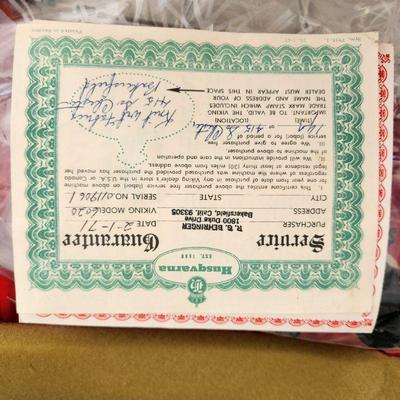 Husqvarna
EST. 1689
Service Guarantee
R. B. BEHRINGER
1800 Duke Drive
Bakersfield, Calif. 93305
DATE 2-1-71
PURCHASER
ADDRESS
VIKING MODEL 6020
CITY
STATE
SERIAL NO.
This certificate entitles the above purchaser free service (labor) on above machine for
one year from date of purchase in any Viking dealer's store in the U.S.A. or Canada
regardless of where the machine was purchased provided the purchaser has moved her
residence at least
II. We agree to give purchaser free
service instruction in the care and operation
the machine above.
III. We agree to give purchaser free
(labor) for a period of
(TIME)
at 415 So Chester
(LOCATION)
IMPORTANT
TO BE VALID, THE VIKING
TRADE MARK STAMP WHICH INCLUDES
THE NAME AND ADDRESS OF YOUR
DEALER MUST APPEAR IN THIS SPACE
Knit Knit Fabrics
415 So Chester
Bakersfield
Printed in Sweden